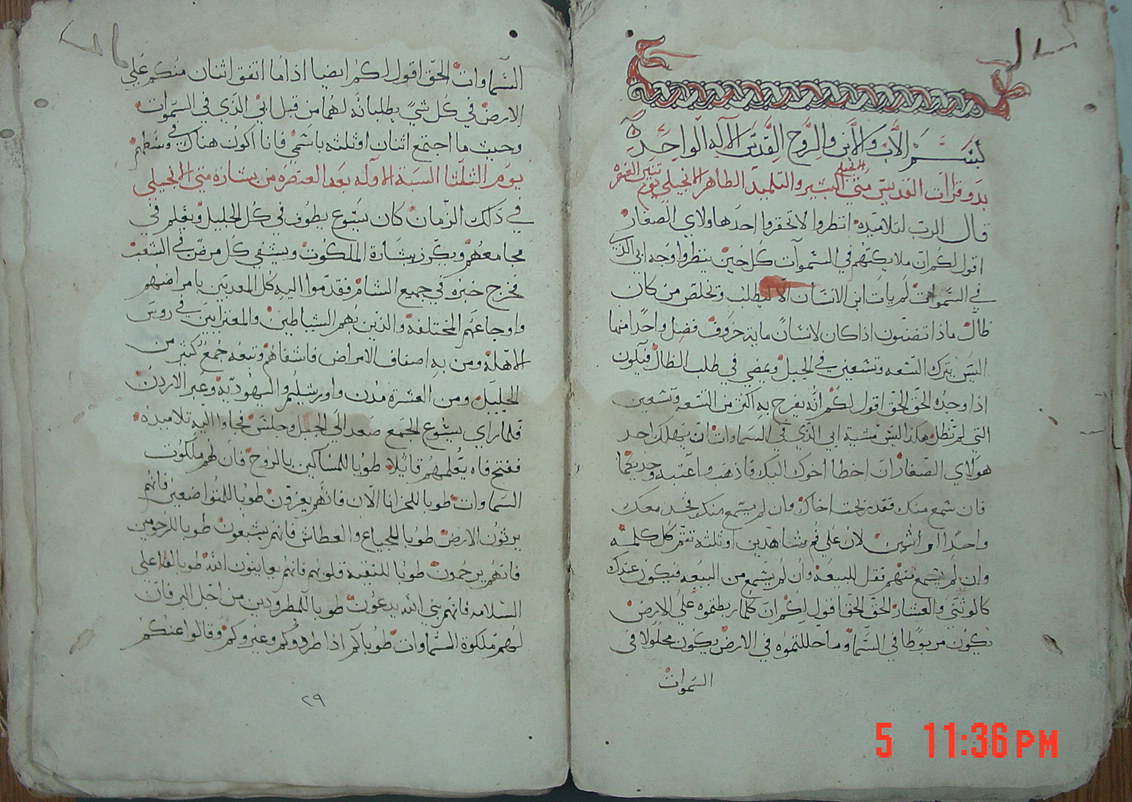 بسم الاب والابن والروح القدس الاله الواحد
بدو قرات القديس متى البشير والتلميد الطاهر الانجيلي يوم تنين العنصره
قال الرب لتلاميده انظروا لا تحقروا احد هاولاي الصغار
اقول لكم ان ملايكتهم في السموات كل حين ينظروا وجه ابي الدي
في السموات لم يات ابن الانسان الا ليطلب ويخلص من كان
ظال مادا تضنون ادا كان لانسان مايه خروف فضل واحدا منها
اليس يترك التسعه وتسعين في الجبل ويمضي في طلب الظال فيكون
ادا وجده الحق الحق اقول لكم انه يفرح به اكتر من التسعه وتسعين
التي لم تظل هكدا ليس مشية ابي الدي في السماوات ان يهلك احد
هولاي الصغار ان اخطا اخوك اليك فادهب واعتبه وحديكما
فان سمع منك فقد ربحت اخاك وان لم يسمع منك فخد معك
واحدا او اتنين لان علي فم شاهدين او تلته تقوم كل كلمه
وان لم يسمع منهم فقل للبيعه وان لم يسمع من البيعه فيكون عندك
كالوتني والعشار الحق الحق اقول لكم ان كلما ربطتموه علي الارض
يكون مربوطا في السما وما حللتموه في الارض يكون محلولا في
السموات
السماوات الحق اقول لكم ايضا ادا ما اتفق اتنان منكم علي
الارض في كل شي يطلبانه لهما من قبل ابي الدي في السموات
وحيت ما اجتمع اتنان او تلته باسمي فانا اكون هناك في وسطهم
يوم التلتا السبة الاوله بعد العنصره من بشارة متى الانجيلي
في دلك الزمان كان يسوع يطوف في كل الجليل ويعلم في
مجامعهم ويكرز بشارة الملكوت ويشفي كل مرض في الشعب
فخرج خبره في جميع الشام فقدموا اليه كل المعدبين بامراضهم
واوجاعهم المختلفه والدين بهم الشياطين والمعترايين في روس
الاهله ومن به اصناف الامراض فاشفاهم وتبعه جمع كتير من
الجليل ومن العشرة مدن واورشليم واليهوديه وعبر الاردن
فلما راي يسوع الجمع صعد الي الجبل وجلس فجاوا اليه تلاميده
ففتح فاه يعلمهم قايلا طوبا للمساكين بالروح فان لهم ملكوت
السماوات طوبا للحزانا الان فانهم يعزون طوبا للمتواضعين فانهم
يرتون الارض طوبا للجياع والعطاش فانهم يشبعون طوبا للرحومين
فانهم يرحمون طوبا للنقيه قلوبهم فانهم يعاينون الله طوبا لفاعلي
السلامه فانهم بني الله يدعون طوبا للمطرودين من اجل البر فان
لهم ملكوة السماوات طوباكم ادا طردوكم وعيروكم وقالوا عنكم
٢٩
5 11:36 PM